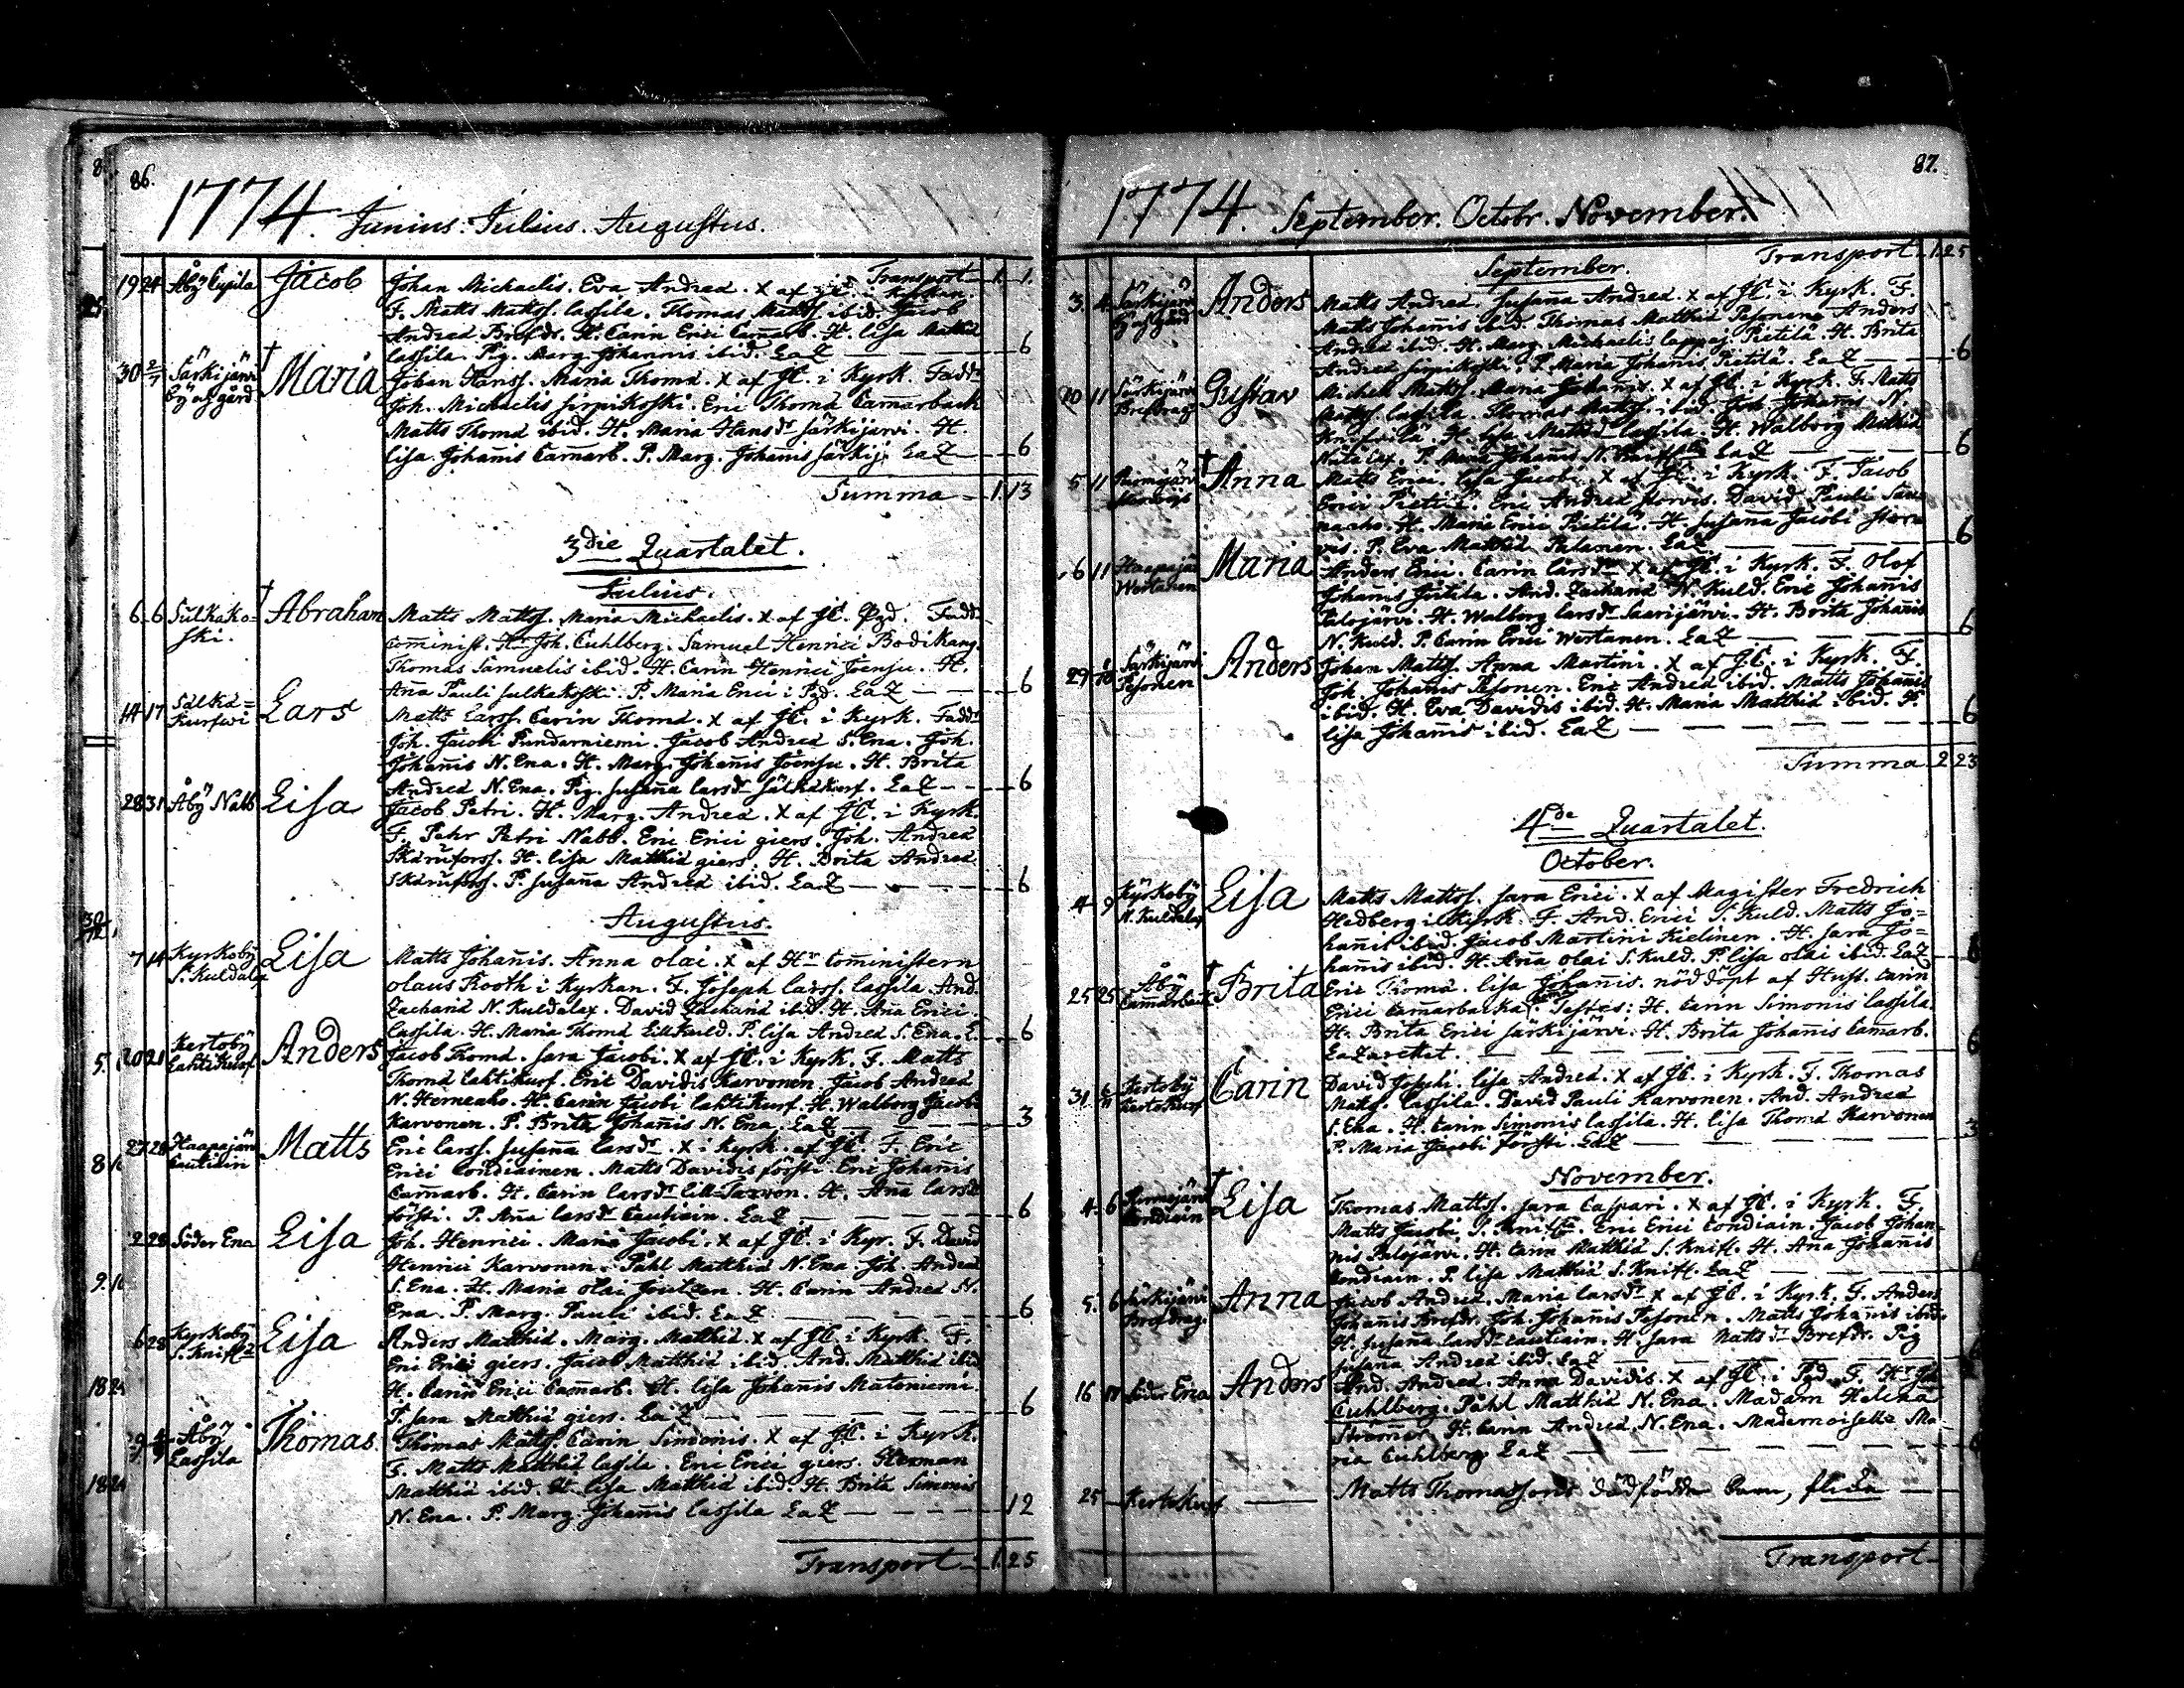 86.
1774. Junius. Julius. Augustus.
Transport - 1. 1.
19 24 Åby Lepila Jacob Johan Michaelis. Eva Andreæ. X af JC. i Kyrkan.
F. Matts Mattss. Lassila. Thomas Mattss. ibid. Jacob
Andreæ Brefdr. H. Carin Erici Camarb. H. Lisa Matthiæ
Lassila. Pig. Marg. Johannis ibid. LaZ — 6
30 2/7 Särkijärvi by af gård † Maria Johan Hanss. Maria Thomæ. X af JC. i Kyrk. Faddr
Joh. Michaelis Sirpikoski. Eric Thomæ Camarback
Matts Thomæ ibid. H. Maria Hansdr Särkijärvi. H.
Lisa Johannis Camarb. P. Marg. Johannis Särkij. LaZ — 6
Summa - 1. 13
3die Quartalet.
Julius.
6. 6 Sulkako-
ski. † Abraham Matts Mattss. Maria Michaelis. X af JC. Pgd. Faddr
Cominist. Hr Joh. Cuhlberg. Samuel Henrici Bodikang
Thomas Samuelis ibid. H. Carin Henrici Joensu. H.
Aña Pauli Sulkakoski. P. Maria Erici i Pgd. LaZ — 6
14 17 Salka=
Kurfwi Lars Matts Larss. Carin Thomæ. X af JC. i Kyrk. Faddr
Joh. Jacobi Pundarniemi. Jacob Andreæ S. Ena. Joh.
Johannis N. Ena. H. Marg. Johannis Joensu. H. Brita
Andreæ N. Ena. Pig. Susaña Larsdr Sälkäkurf. LaZ — 6
28 31 Åby Nabb Lisa Jacob Petri. H. Marg. Andreæ. X af JC. i Kyrk.
F. Pehr Petri Nabb. Eric Erici giers. Joh. Andreæ
Skårufors. H. Lisa Matthiæ giers. H. Brita Andreæ
Skårufors. P. Susaña Andreæ ibid. LaZ — 6
Augustus.
7 14 Kyrkoby
S. Kuldalax Lisa Matts Johañis. Anna Olai. X af Hr Cominstern
Olaus Rooth i Kyrkan. F. Joseph Larss. Lassila. And.
Zachariæ N. Kuldalax. David Zachariæ ibid. H. Aña Erici
Lassila. H. Maria Thomæ Lillkuld. P. Lisa Andreæ S. Ena. L. — 6
20 21 Kertoby
Lahtikurf Anders Jacob Thomæ. Sara Jacobi. X af JC. i Kyrk. F. Matts
Thomæ Lahtikurf. Eric Davidis Karvonen. Jacob Andreæ
N. Herneaho. H. Carin Jacobi Lahtikurf. H. Walborg Jacobi
Karvonen. P. Brita Johañis N. Ena. LaZ — 3
27 28 Haapajärvi
Cautiain Matts Eric Larss. Susaña Larsdr. X i Kyrk. af JC. F. Eric
Erici Condiainen. Matts Davidis Försti. Eric Johañis
Camarb. H. Carin Larsdr Lill-Tarvon. H. Aña Larsdr
Försti. P. Aña Larsdr Cautiain. LaZ — 6
2 28 Söder Ena Lisa Joh. Henrici. Maria Jacobi. X af JC. i Kyr. F. David
Henrici Karvonen. Påhl Matthiæ N. Ena. Joh. Andreæ
S. Ena. H. Maria Olai Joutzen. H. Carin Andreæ N.
Ena. P. Marg. Pauli ibid. LaZ — 6
6 28 Kyrkoby
S. Knift Lisa Anders Matthiæ. Marg. Matthiæ. X af JC. i Kyrk. F.
Eric Erici giers. Jacob Matthiæ ibid. And. Matthiæ ibid
H. Carin Erici Camarb. H. Lisa Johañis Mataniemi.
P. Sara Matthiæ giers. LaZ — 6
Åby
Lassila Thomas Thomas Mattss. Carin Simonis. X af JC. i Kyrk.
F. Matts Matthiæ Lassila. Eric Erici giers. Herman
Matthiæ ibid. H. Lisa Matthiæ ibid. H. Brita Simonis
N. Ena. P. Marg. Johañis Lassila LaZ — 12
Transport - 1. 25
87.
1774. September. Octobr. November.
September. Transport - 1. 25
3. 4 Särkijärvi
by af gård Anders Matts Andreæ. Susaña Andreæ. X af JC. i Kyrk. F.
Matts Johañis ibid. Thomas Matthiæ Pesonen. Anders
Andreæ ibid. H. Marg. Michaelis Lappaj. Pietilä. H. Brita
Andreæ Sirpikoski. P. Maria Johañis Pietilä. LaZ — 6
11 Särkijärvi
Brefdrag Gustav Michel Mattss. Maria Johañis. X af JC. i Kyrk. F. Matts
Mattss. Lassila. Thomas Mattss. ibid. Joh. Johañis N.
H. Lisa Matthiæ Lassila. H. Walborg Matthiæ
P. Maria Johañis N. LaZ — 6
5 11 † Anna Matts Erici. Lisa Jacobi. X af JC. i Kyrk. F. Jacob
Erici Pietilä. Eric Andreæ Storvis. David Pauli
H. Maria Erici Pietilä. H. Susaña Jacobi Stor-
vis. P. Eva Matthiæ Palanen. LaZ — 6
6 11 Haapajä
Wertanen Maria Anders Erici. Carin Larsdr X af JC. i Kyrk. F. Olof
Johañis Jutila. And. Zachariæ N. Kuld. Eric Johañis
Palojärvi. H. Walborg Larsdr Saarijärvi. H. Brita Johañis
N. Kuld. P. Carin Erici Wertanen. LaZ — 6
29 Särkijärvi
Pesonen Anders Johan Mattss. Anna Martini. X af JC. i Kyrk. F.
Joh. Johañis Pesonen. Eric Andreæ ibid. Matts Johañis
ibid. H. Eva Davidis ibid. H. Maria Matthiæ ibid. P.
Lisa Johañis ibid. LaZ — 6
Summa 2. 23
4de Quartalet.
October.
4 9 Kyrkoby
N. Kuldalax Lisa Matts Mattss. Sara Erici. X af Magister Fredrich
Hedberg i Kyrk. F. And. Erici S. Kuld. Matts Jo=
hañis ibid. Jacob Martini Kielinen. H. Sara Jo=
hañis ibid. H. Aña Olai S. Kuld. P. Lisa Olai ibid. LaZ 6
25 25 Åby
Camarback † Brita Eric Thomæ. Lisa Johañis. nöddöpt af Hust. Carin
Erici Camarbacka. Testes: H. Carin Simonis Lassila.
H. Brita Erici Särkijärvi. H. Brita Johañis Camarb.
Lazarettet. — 6
31 Kertoby
Kertokurf Carin David Josephi. Lisa Andreæ. X af JC. i Kyrk. F. Thomas
Mattss. Lassila. David Pauli Karvonen. And. Andreæ
S. Ena. H. Carin Simonis Lassila. H. Lisa Thomæ Karvonen
P. Maria Jacobi Försti. LaZ — 3
November.
4. 6 Condiain † Lisa Thomas Mattss. Sara Caspari. X af JC. i Kyrk. F.
Matts Jacobi S. Knift. Eric Erici Condiain. Jacob Johan-
nis Palojärvi. H. Carin Matthiæ S. Knift. H. Aña Johañis
Condiain. P. Lisa Matthiæ S. Knift. LaZ —
5. 6 Särkijärvi
Brefdrag. Anna Jacob Andreæ. Maria Larsdr X af JC. i Kyrk. F. Anders
Johañis Brefdr. Joh. Johañis Pesonen. Matts Johañis ibid.
H. Susaña Larsdr Cautiain. H. Sara Mattsdr Brefdr. Pig
Susaña Andreæ ibid. LaZ — 6
16 Söder Ena Anders And. Andreæ. Anna Davidis. X af JC. i Pgd. F. Hr Joh
Cuhlberg. Påhl Matthiæ N. Ena. Madam Helena
H. Carin Andreæ N. Ena. Mademoiselle Ma-
ria Cuhlberg LaZ — 6
25 Kertokurf — Matts Thomassons dödfödda barn,
Transport -